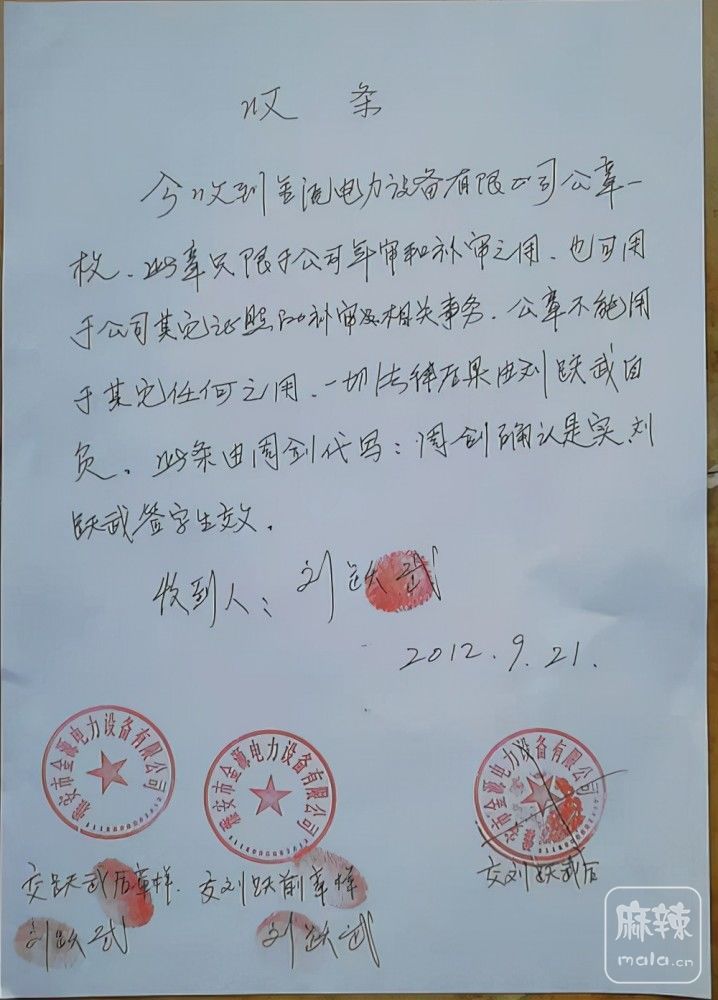 收 条
今收到金源电力设备有限公司公章一
枚、此章只限于公司年审和补审之用、也可用
于公司其它证照的补审及相关事务。公章不能用
于其它任何之用、一切法律后果由刘跃武自
负。此条由周剑代写；周剑确认是实、刘
跃武签字生效。
收到人：刘跃武
2012.9.21.
雅安市金源电力设备有限公司
雅安市金源电力设备有限公司
雅安市金源电力设备有限公司
交跃武后章样.
交刘跃前章样
交刘跃武后
刘跃武
刘跃武
麻辣
mala.cn